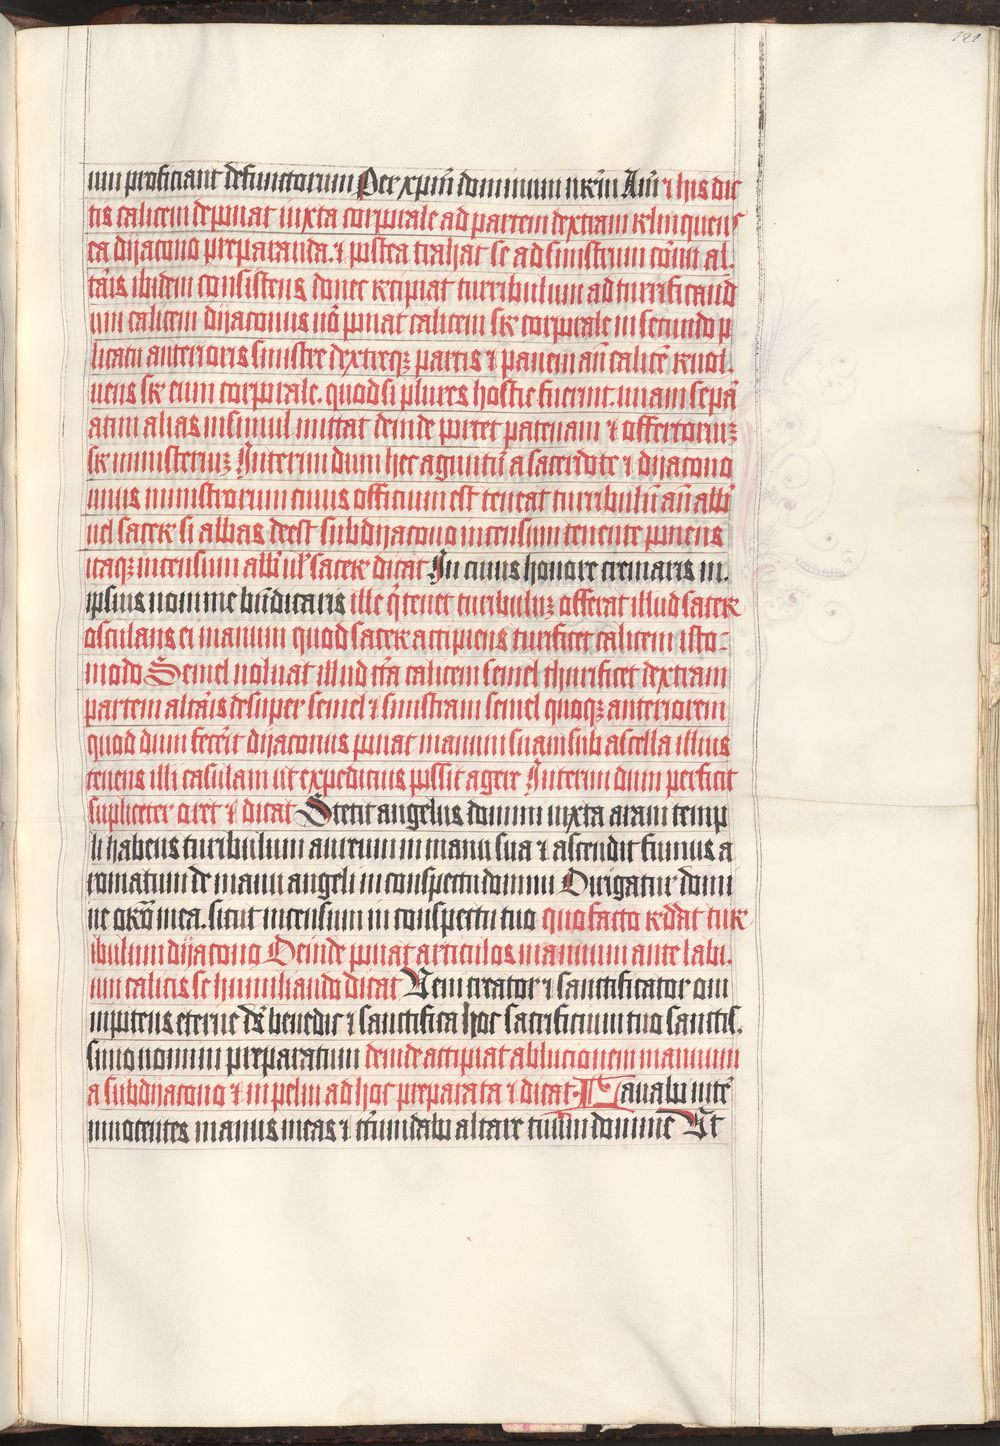 121
um proficiant defunctorum Per xpm̄ dominum nrm̄ Am̄ ⁊ his dic
tis calicem deponat iuxta corporale ad partem dextram relinquens
ea dijacono preparanda. ⁊ postea trahat se ad sinistrum cornu al.
taris ibidem consistens donec recipiat turribulum ad turrificand
um calicem dijaconus uo ponat calicem sr corporale in secundo p
licatu anterioris sinistre dextreqz partis ⁊ panem an̄ calicē reuol.
uens sr eum corporale. quod si plures hostie fuerint. unam sepa
atim alias insimul mittat deinde portet patenam ⁊ offertoriuz
sr ministeriuz Interim dum hec aguntur a sacerdote ⁊ dijacono
unus ministrorum cuius officium est teneat turribulū an̄ abb
uel sacer si abbas deest subdijacono incensum tenente ponens
itaqz incensum abb ul sacer dicat In cuius honore cremaris in.
ipsius nomine bn̄dicaris ille q̄ tenet turibuluz offerat illud sacer
osculans ei manum quod sacer accipiens turificet calicem isto-
modo Semel uoluat illud cr̄a calicem semel thurificet dextram
partem altaris desuper semel ⁊ sinistram semel quoqz anteriorem
quod dum fecerit dijaconus ponat manum suam sub ascella illius
tenens illi casulam ut expeditius possit agere Interim dum perficit
supliceter oret ⁊ dicat Stetit angelus domini iuxta aram temp
li habens turibulum aureum in manu sua ⁊ ascendit fumus a
romatum de manu angeli in conspectu domini Dirigatur domi
ne oro mea. sicut incensum in conspectu tuo quo facto redat tur
ibulum dijacono Deinde ponat articulos manuum ante labi.
um calicis se humiliando dicat Veni creator ⁊ sanctificator om
nipotens eterne ds benedic ⁊ sanctifica hoc sacrificium tuo sanctis.
simo nomini preparatum deinde accipiat ablucionem manuum
a subdijacono ⁊ in pelui ad hoc preparata ⁊ dicat. Lauabo inter
innocentes manus meas ⁊ circundabo altare tuum domine Vt